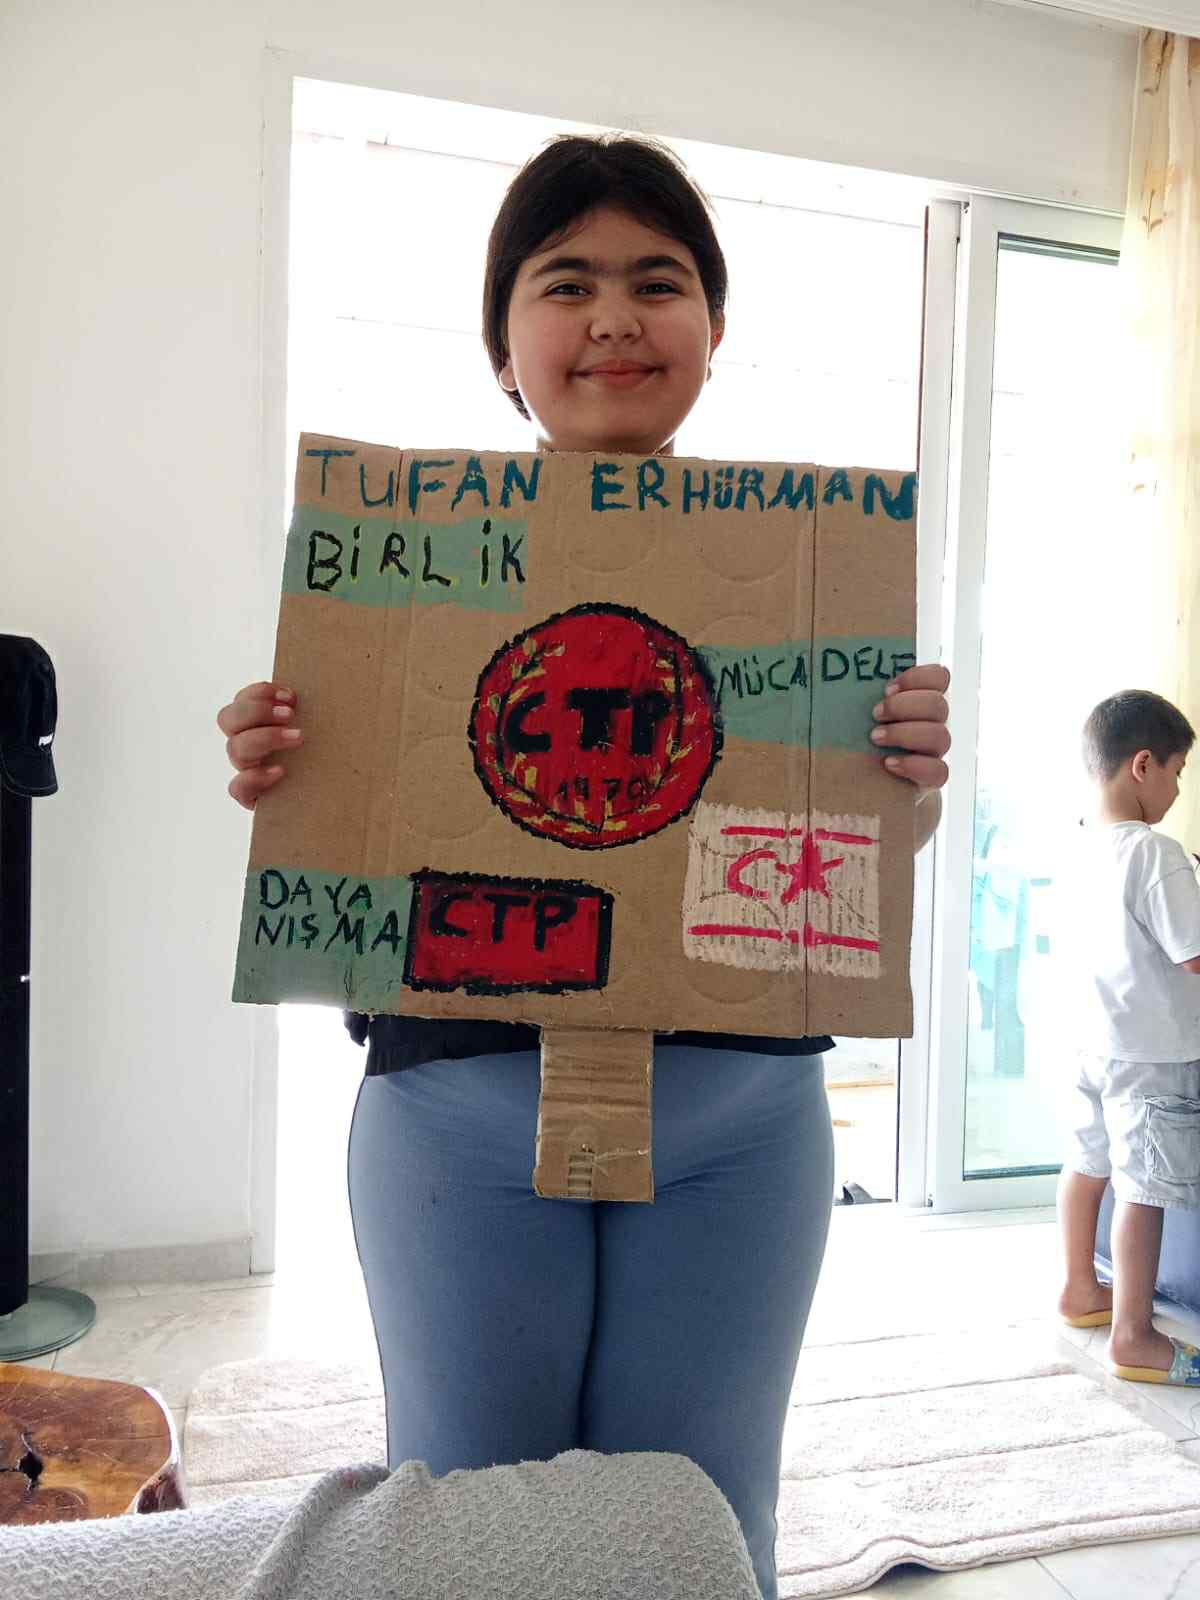 TUFAN ERHÜRMAN
BİRLİK
MÜCADELE
CTP
1970
DAYA
NIŞMA
CTP